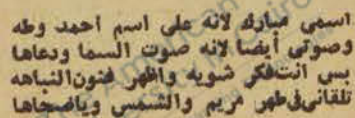 اسمى مبارك لانه على اسم احمد وطه
وصوتى أيضا لانه صوت السما ودعاها
بس انت فكر شويه واظهر فنون النباهه
تلقانى فى طهر مريم والشمس وياضحاها